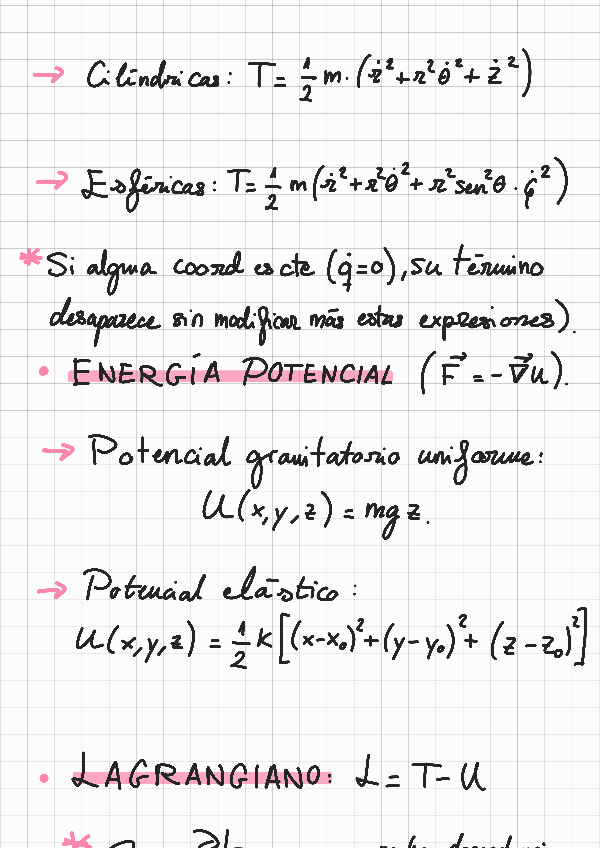 → Cilíndricas: T = 1/2 m · (ṙ² + r²θ̇² + ż²)
→ Esféricas: T = 1/2 m (ṙ² + r²θ̇² + r² sen²θ · φ̇²)
* Si alguna coord es cte (q̇=0), su término
desaparece sin modificar más estas expresiones).
• ENERGÍA POTENCIAL (F⃗ = -∇⃗U).
→ Potencial gravitatorio uniforme:
U(x,y,z) = mgz.
→ Potencial elástico:
U(x,y,z) = 1/2 k [(x-x₀)² + (y-y₀)² + (z-z₀)²]
• LAGRANGIANO: L = T - U